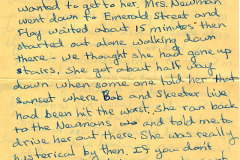 wanted to get to her. Mrs. Newman
went down to Emerald Street and
Flay waited about 15 minutes then
started out alone walking down
there - we thought she had gone up
stairs. She got about half way
down when some one told her that
sunset where Bob and Skeeter live
had been hit the worst. She ran back
to the Newmans and told me to
drive her out there. She was really
hysterical by then. If you don't